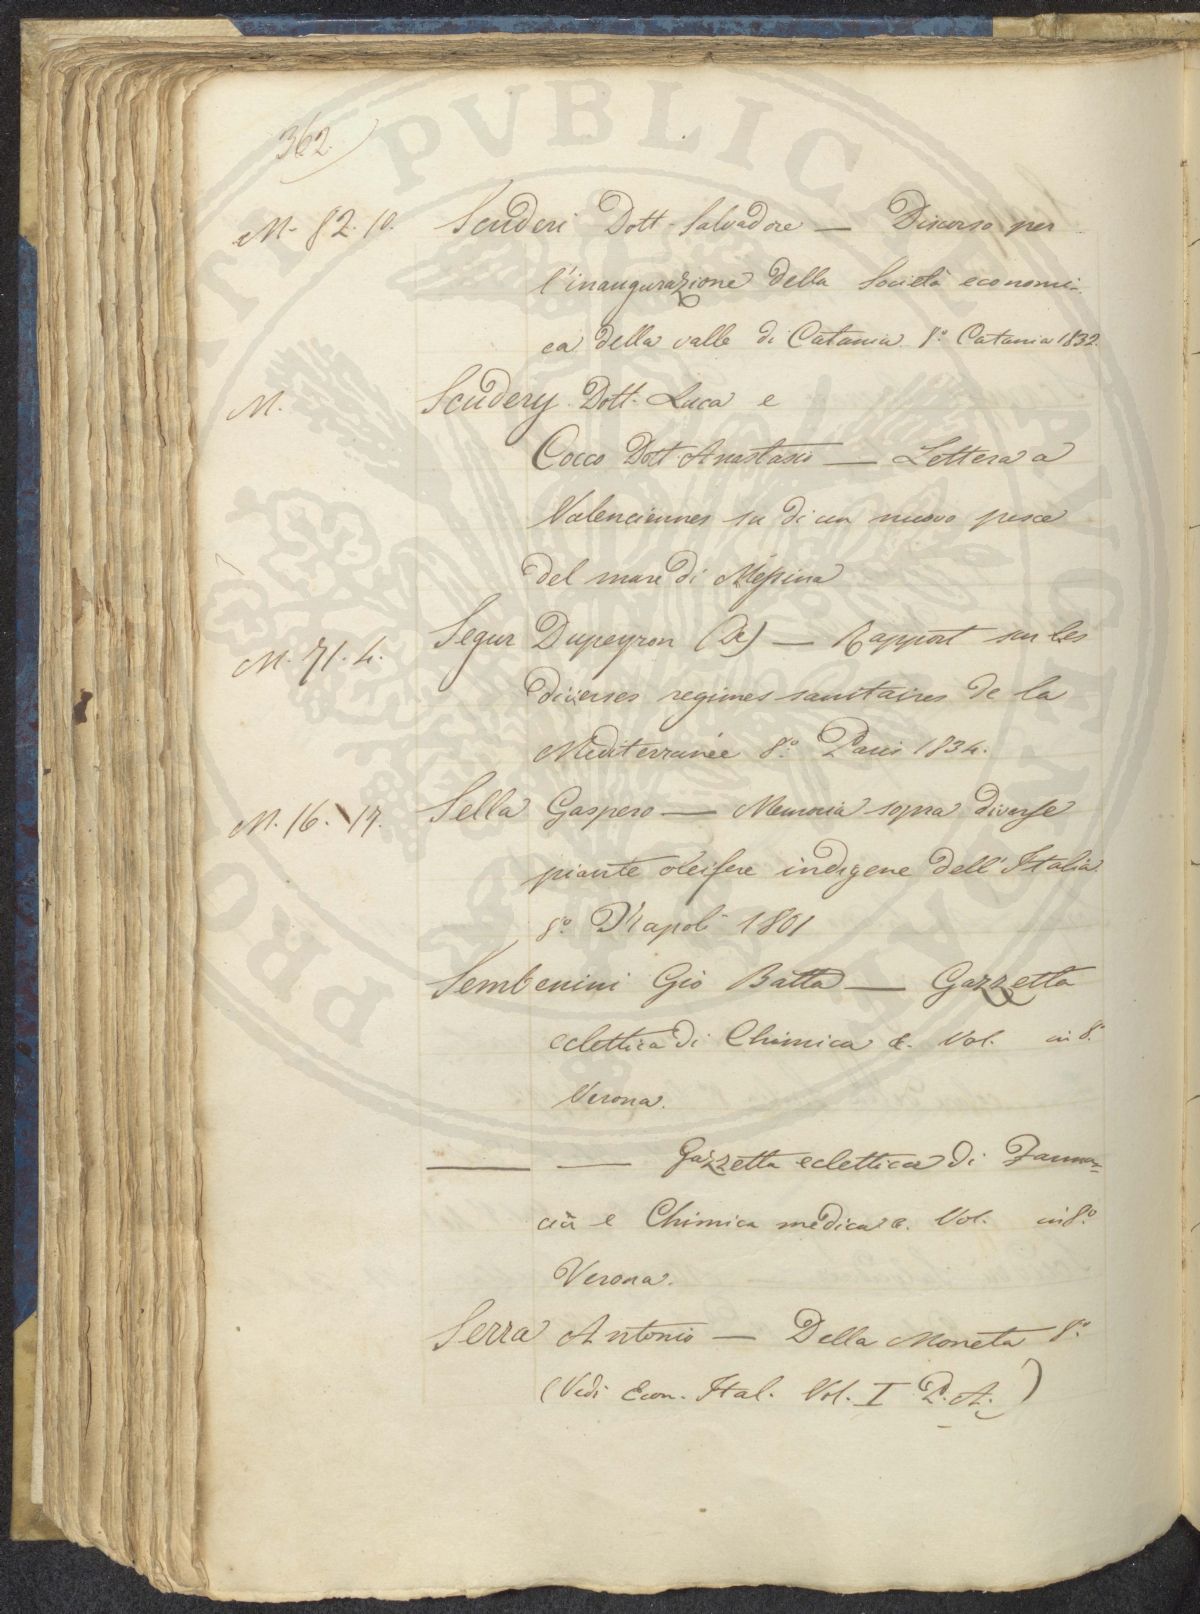 362.
M. 82. 10. Scuderi Dott. Salvadore — Discorso per
l'inaugurazione della Società economi-
ca della valle di Catania. 8.° Catania 1832.
M. Scudery Dott. Luca e
Cocco Dott. Anastasio — Lettera a
Valenciennes su di un nuovo pesce
del mare di Messina
M. 71. 4. Segur Dupeyron (De) — Rapport sur les
diverses regimes sanitaires de la
Mediterranée 8.° Paris 1834.
M. 16. 17. Sella Gaspero — Memoria sopra diverse
piante oleifere indigene dell'Italia
8.° Napoli 1801
Sembenini Gio Batta — Gazzetta
eclettica di Chimica &. Vol. in 8.°
Verona.
— — Gazzetta eclettica di Farma-
cia e Chimica medica &. Vol. in 8.°
Verona.
Serra Antonio — Della Moneta 8.°
(Vedi Econ. Ital. Vol. I P. A.)
PUBLIC